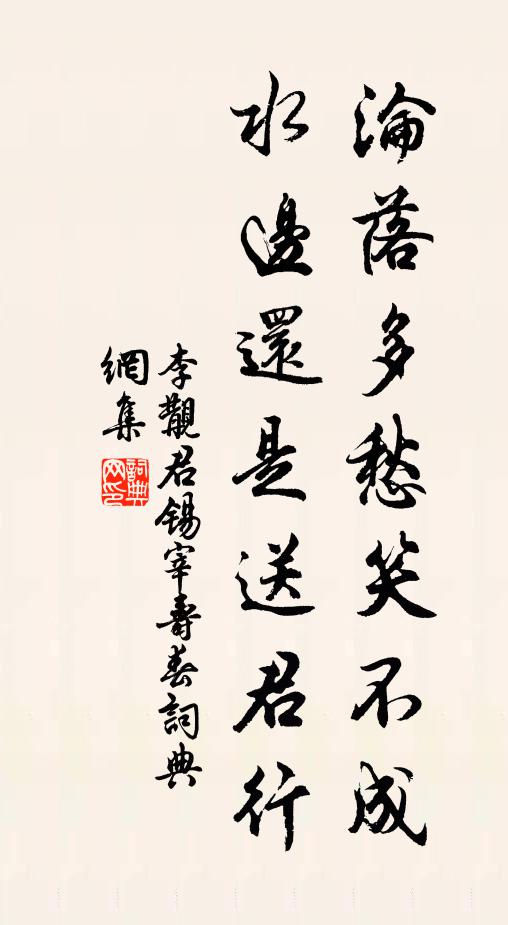 淪落多愁笑不成
水邊還是送君行
李觀君錫宰壽春詞典
網集
詞典
网印